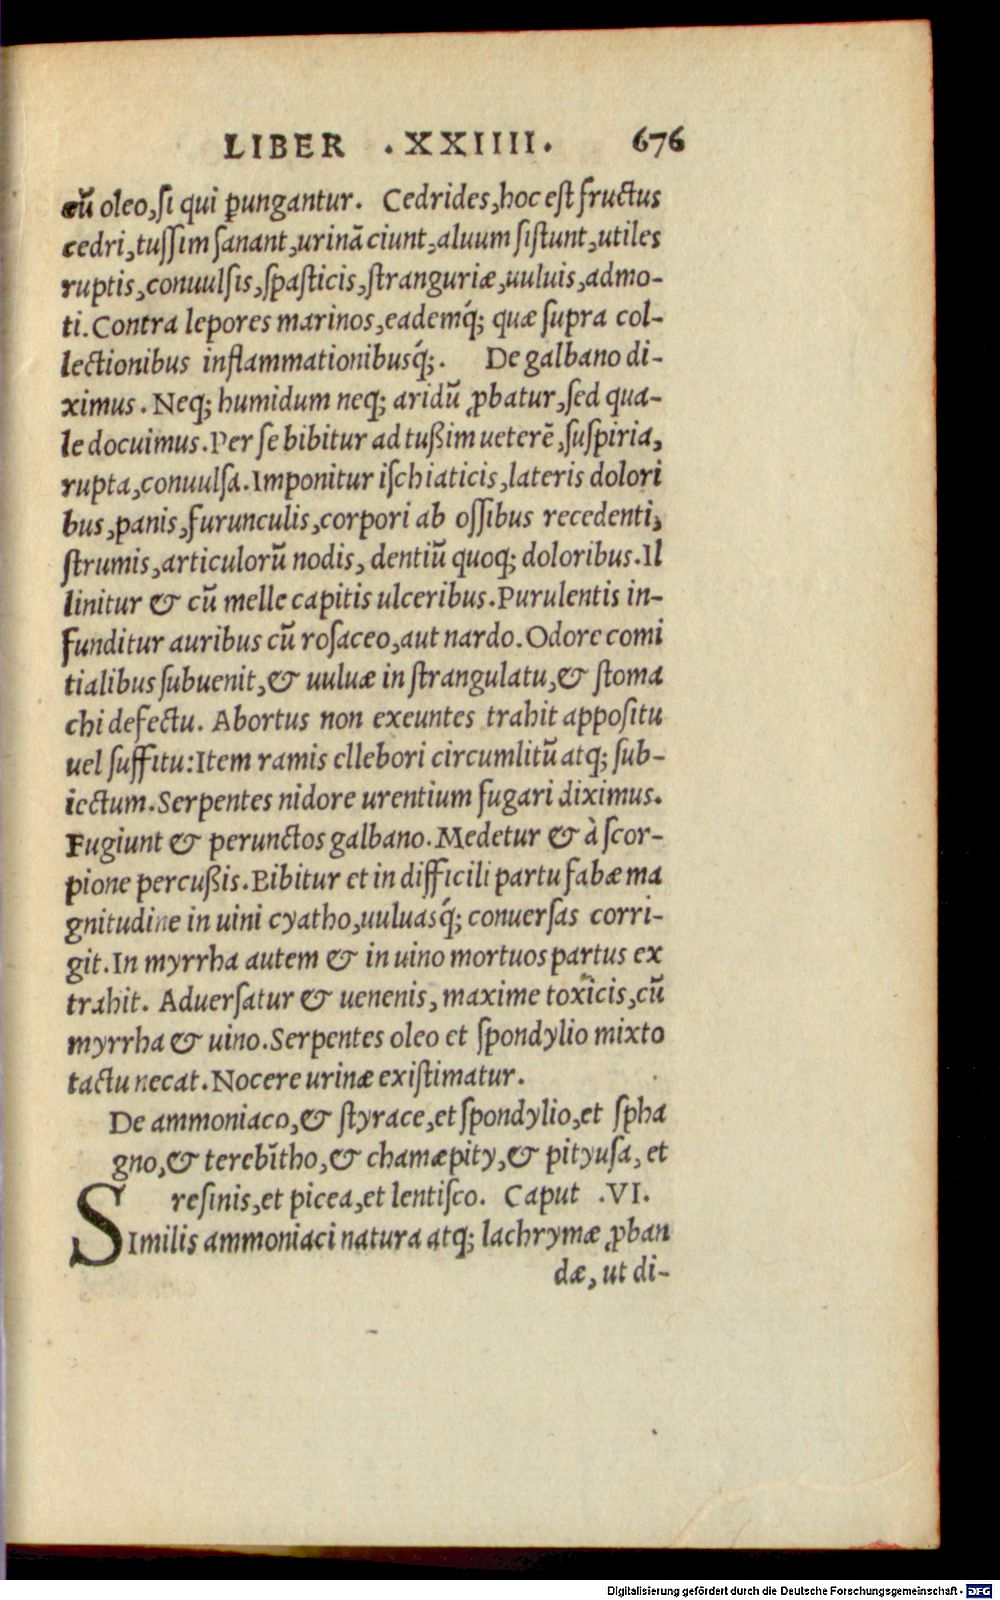 LIBER .XXIIII. 676
cū oleo, si qui ꝑungantur. Cedrides, hoc est fructus
cedri, tussim sanant, urinā ciunt, aluum sistunt, utiles
ruptis, conuulsis, spasticis, stranguriæ, uuluis, admo-
ti. Contra lepores marinos, eademq́; quæ supra col-
lectionibus inflammationibusq́;. De galbano di-
ximus. Neq; humidum neq; aridū ꝓbatur, sed qua-
le docuimus. Per se bibitur ad tußim ueterē, suspiria,
rupta, conuulsa. Imponitur ischiaticis, lateris dolori
bus, panis, furunculis, corpori ab ossibus recedenti,
strumis, articulorū nodis, dentiū quoq; doloribus. Il
linitur & cū melle capitis ulceribus. Purulentis in-
funditur auribus cū rosaceo, aut nardo. Odore comi
tialibus subuenit, & uuluæ in strangulatu, & stoma
chi defectu. Abortus non exeuntes trahit appositu
uel suffitu: Item ramis ellebori circumlitū atq; sub-
iectum. Serpentes nidore urentium fugari diximus.
Fugiunt & perunctos galbano. Medetur & à scor-
pione percußis. Bibitur et in difficili partu fabæ ma
gnitudine in uini cyatho, uuluasq́; conuersas corri-
git. In myrrha autem & in uino mortuos partus ex
trahit. Aduersatur & uenenis, maxime toxicis, cū
myrrha & uino. Serpentes oleo et spondylio mixto
tactu necat. Nocere urinæ existimatur.
De ammoniaco, & styrace, et spondylio, et spha
gno, & terebītho, & chamæpity, & pityusa, et
resinis, et picea, et lentisco. Caput .VI.
SImilis ammoniaci natura atq; lachrymæ ꝓban
dæ, ut di-
Digitalisierung gefördert durch die Deutsche Forschungsgemeinschaft - DFG